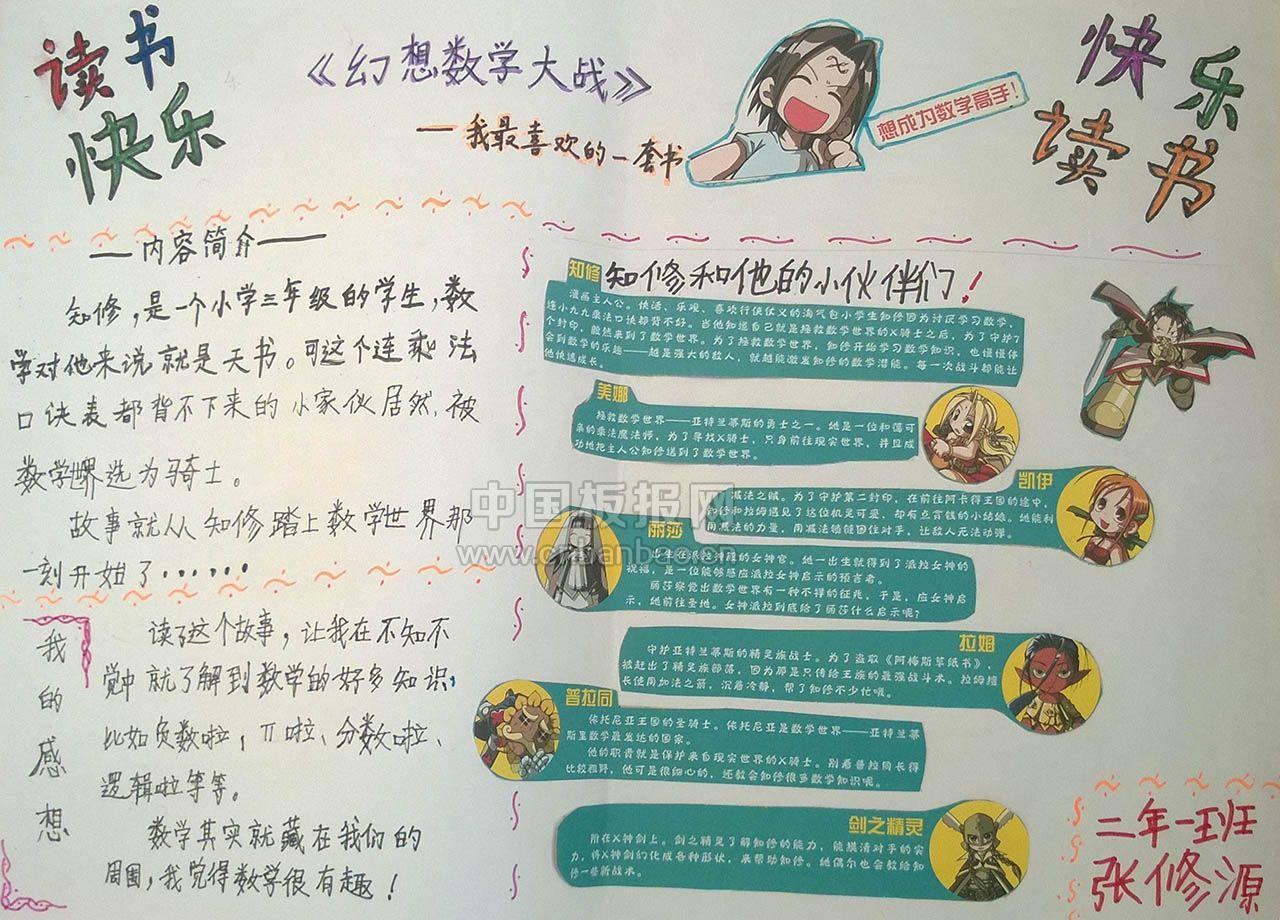 读书
快乐
《幻想数学大战》
一我最喜欢的一套书
想成为数学高手!
快乐
读书
—内容简介—
知修,是一个小学三年级的学生,数
学对他来说就是天书。可这个连乘法
口诀表都背不下来的小家伙居然,被
数学世界选为骑士。
故事就从知修踏上数学世界那
一刻开始了······
我的感想
读了这个故事,让我在不知不
觉中就了解到数学的好多知识,
比如负数啦,π啦、分数啦、
逻辑啦等等。
数学其实就藏在我们的
周围,我觉得数学很有趣!
知修 知修和他的小伙伴们!
漫画主人公。快活、乐观、喜欢行侠仗义的淘气包小学生知修因为讨厌学习数学,
连小九九乘法口诀都背不好。当他知道自己就是拯救数学世界的X骑士之后,为了守护7
个封印,毅然来到了数学世界。为了拯救数学世界,知修开始学习数学知识,也慢慢体
会到数学的乐趣——越是强大的敌人,就越能激发知修的数学潜能。每一次战斗都能让
他快速成长。
美娜
拯救数学世界——亚特兰蒂斯的勇士之一。她是一位和蔼可
亲的乘法魔法师。为了寻找X骑士,只身前往现实世界,并且成
功地把主人公知修送到了数学世界。
凯伊
减法之贼。为了守护第二封印,在前往阿卡得王国的途中,
知修和拉姆遇见了这位机灵可爱、却有点贪钱的小姑娘。她能利
用减法的力量,用减法锁链困住对手,让敌人无法动弹。
丽莎
出生在派拉神殿的女神官。她一出生就得到了派拉女神的
祝福,是一位能够感应派拉女神启示的预言者。
丽莎察觉出数学世界有一种不祥的征兆,于是,应女神启
示,她前往圣地。女神派拉到底给了丽莎什么启示呢?
拉姆
守护亚特兰蒂斯的精灵族战士。为了盗取《阿梅斯草纸书》,
掀起出了精灵族部落,因为那是只传给王族的最强战斗术。拉姆擅
长使用加法之箭,沉着冷静,帮了知修不少忙哦。
普拉同
依托尼亚王国的圣骑士。依托尼亚是数学世界——亚特兰蒂
斯里数学最发达的国家。
他的职责就是保护来自现实世界的X骑士。别看普拉同长得
比较粗野,他可是很细心的,还教会知修很多数学知识呢。
剑之精灵
附在X神剑上。剑之精灵了解知修的能力,能摸清对手的实
力,将X神剑幻化成各种形状,来帮助知修。她偶尔也会教给知
修一些新战术。
二年一班
张修源
中国板报网